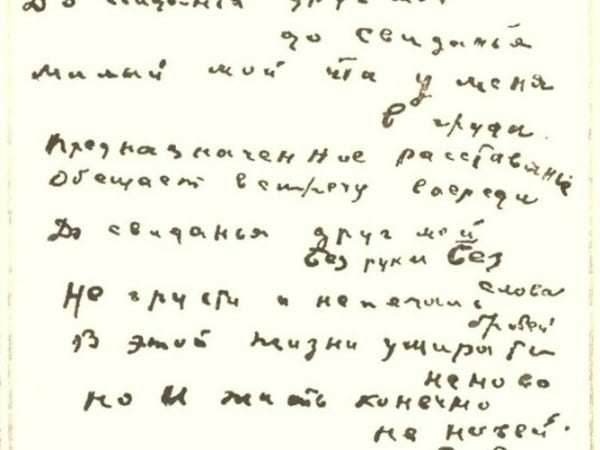 До свиданья друг мой
до свиданья
Милый мой ты у меня
в груди.
Предназначенное расставанье
Обещает встречу впереди
До свиданья друг мой
без руки без
слова
Не грусти и не печаль
бровей
В этой жизни умирать
не ново
но И жить конечно
не новей.